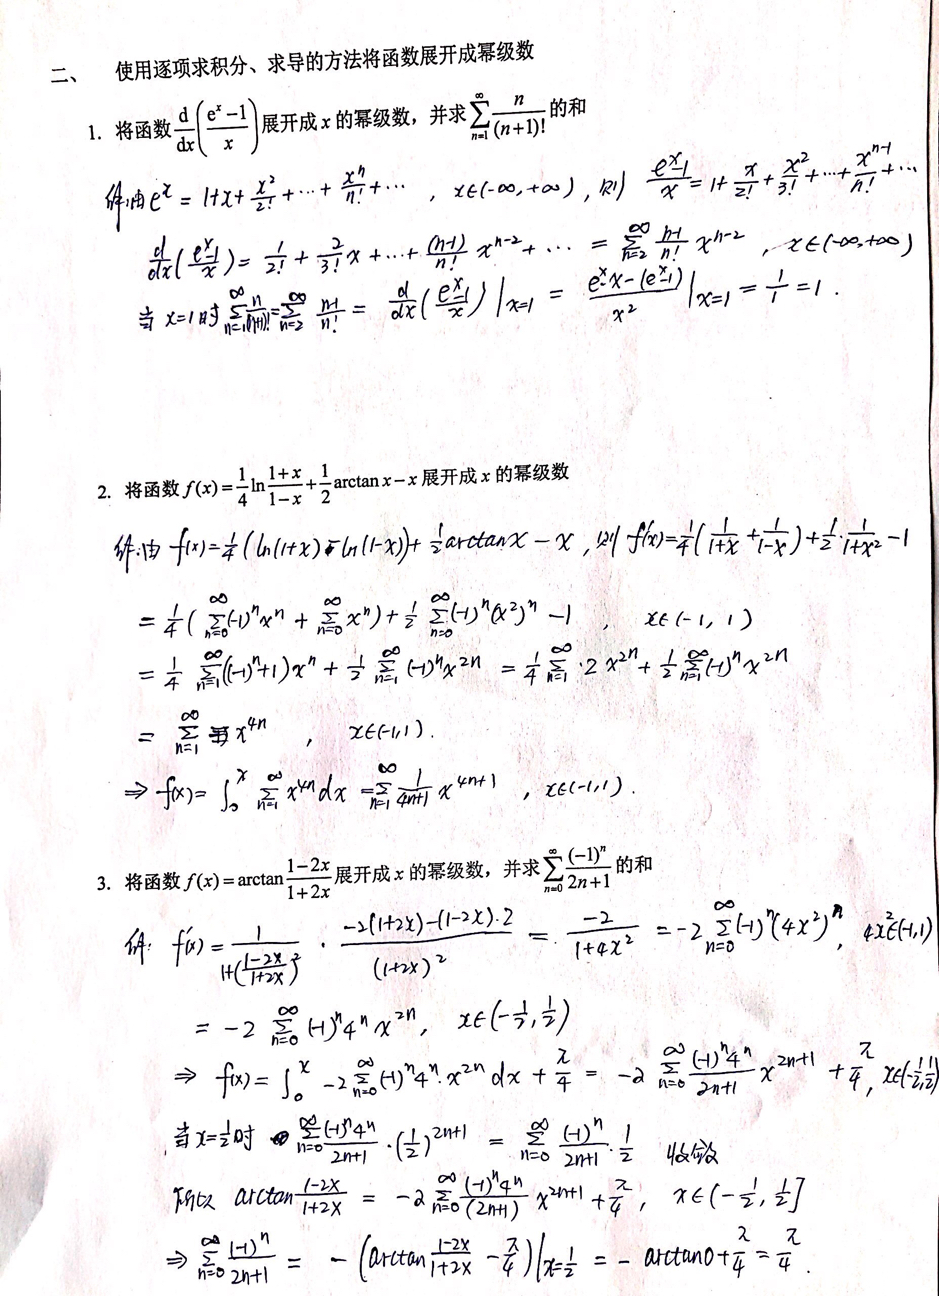 二、 使用逐项求积分、求导的方法将函数展开成幂级数
1. 将函数 d/dx((e^x−1)/x) 展开成 x 的幂级数，并求 ∑_{n=1}^{∞} n/(n+1)! 的和
解:由 e^x = 1+x+x²/2!+⋯+x^n/n!+⋯ , x∈(-∞,+∞), 则 (e^x-1)/x = 1+x/2!+x²/3!+⋯+x^{n-1}/n!+⋯
d/dx((e^x-1)/x) = 1/2!+2/3! x+⋯+(n-1)/n! x^{n-2}+⋯ = ∑_{n=2}^{∞} (n-1)/n! x^{n-2} , x∈(-∞,+∞)
当 x=1时 ∑_{n=1}^{∞} n/(n+1)! = ∑_{n=2}^{∞} (n-1)/n! = d/dx((e^x-1)/x)|_{x=1} = (e^x·x-(e^x-1))/x² |_{x=1} = 1/1 = 1 .
2. 将函数 f(x)=1/4 ln (1+x)/(1−x) + 1/2 arctan x − x 展开成 x 的幂级数
解:由 f(x)=1/4(ln(1+x)-ln(1-x))+1/2 arctanx-x , 则 f'(x)=1/4(1/(1+x)+1/(1-x))+1/2·1/(1+x²)-1
= 1/4(∑_{n=0}^{∞}(-1)^n x^n + ∑_{n=0}^{∞} x^n)+1/2 ∑_{n=0}^{∞}(-1)^n(x²)^n -1 , x∈(-1, 1)
= 1/4 ∑_{n=1}^{∞}((-1)^n+1)x^n + 1/2 ∑_{n=1}^{∞}(-1)^n x^{2n} = 1/4 ∑_{n=1}^{∞}·2x^{2n}+1/2 ∑_{n=1}^{∞}(-1)^n x^{2n}
= ∑_{n=1}^{∞} x^{4n} , x∈(-1,1).
⇒ f(x)= ∫_0^x ∑_{n=1}^{∞} x^{4n} dx = ∑_{n=1}^{∞} 1/(4n+1) x^{4n+1} , x∈(-1,1).
3. 将函数 f(x)=arctan (1−2x)/(1+2x) 展开成 x 的幂级数，并求 ∑_{n=0}^{∞} (−1)^n/(2n+1) 的和
解: f'(x)= 1/(1+((1-2x)/(1+2x))²) · (-2(1+2x)-(1-2x)·2)/(1+2x)² = -2/(1+4x²) = -2∑_{n=0}^{∞}(-1)^n(4x²)^n, 4x²∈(-1,1)
= -2 ∑_{n=0}^{∞}(-1)^n 4^n x^{2n}, x∈(-1/2,1/2)
⇒ f(x)= ∫_0^x -2∑_{n=0}^{∞}(-1)^n 4^n·x^{2n} dx + π/4 = -2 ∑_{n=0}^{∞} (-1)^n 4^n/(2n+1) x^{2n+1} + π/4, x∈(-1/2,1/2)
当 x=1/2时 ∑_{n=0}^{∞} (-1)^n 4^n/(2n+1)·(1/2)^{2n+1} = ∑_{n=0}^{∞} (-1)^n/(2n+1)·1/2 收敛
所以 arctan (1-2x)/(1+2x) = -2∑_{n=0}^{∞} (-1)^n 4^n/(2n+1) x^{2n+1}+π/4, x∈(-1/2, 1/2]
⇒ ∑_{n=0}^{∞} (-1)^n/(2n+1) = -(arctan (1-2x)/(1+2x) - π/4)|_{x=1/2} = -arctan0+π/4 = π/4 .